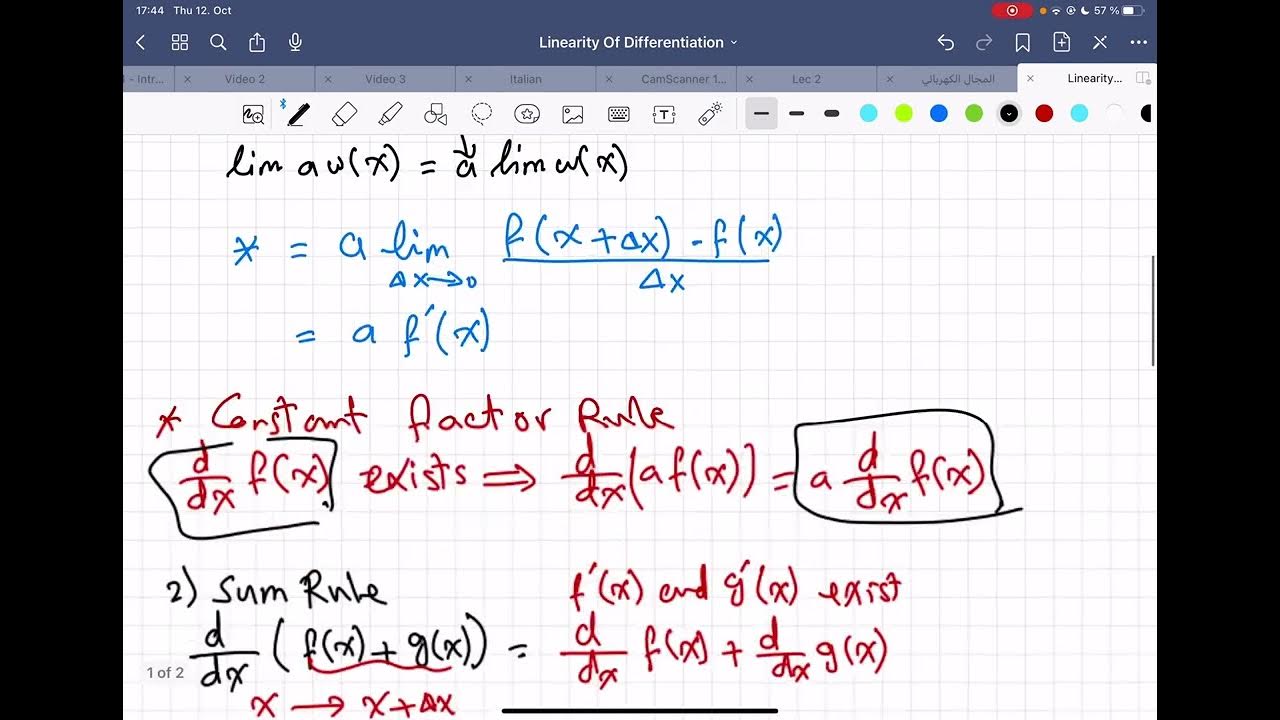 17:44 Thu 12. Oct 57 %
Linearity Of Differentiation
- Intr... Video 2 Video 3 Italian CamScanner 1... Lec 2 المجال الكهربائي Linearity...
lim a w(x) = a lim w(x)
* = a lim f(x+Δx) - f(x)
Δx→0 Δx
= a f′(x)
* Constant factor Rule
d/dx f(x) exists ⟹ d/dx (a f(x)) = a d/dx f(x)
2) Sum Rule f′(x) and g′(x) exist
d/dx (f(x) + g(x)) = d/dx f(x) + d/dx g(x)
1 of 2
x → x+Δx